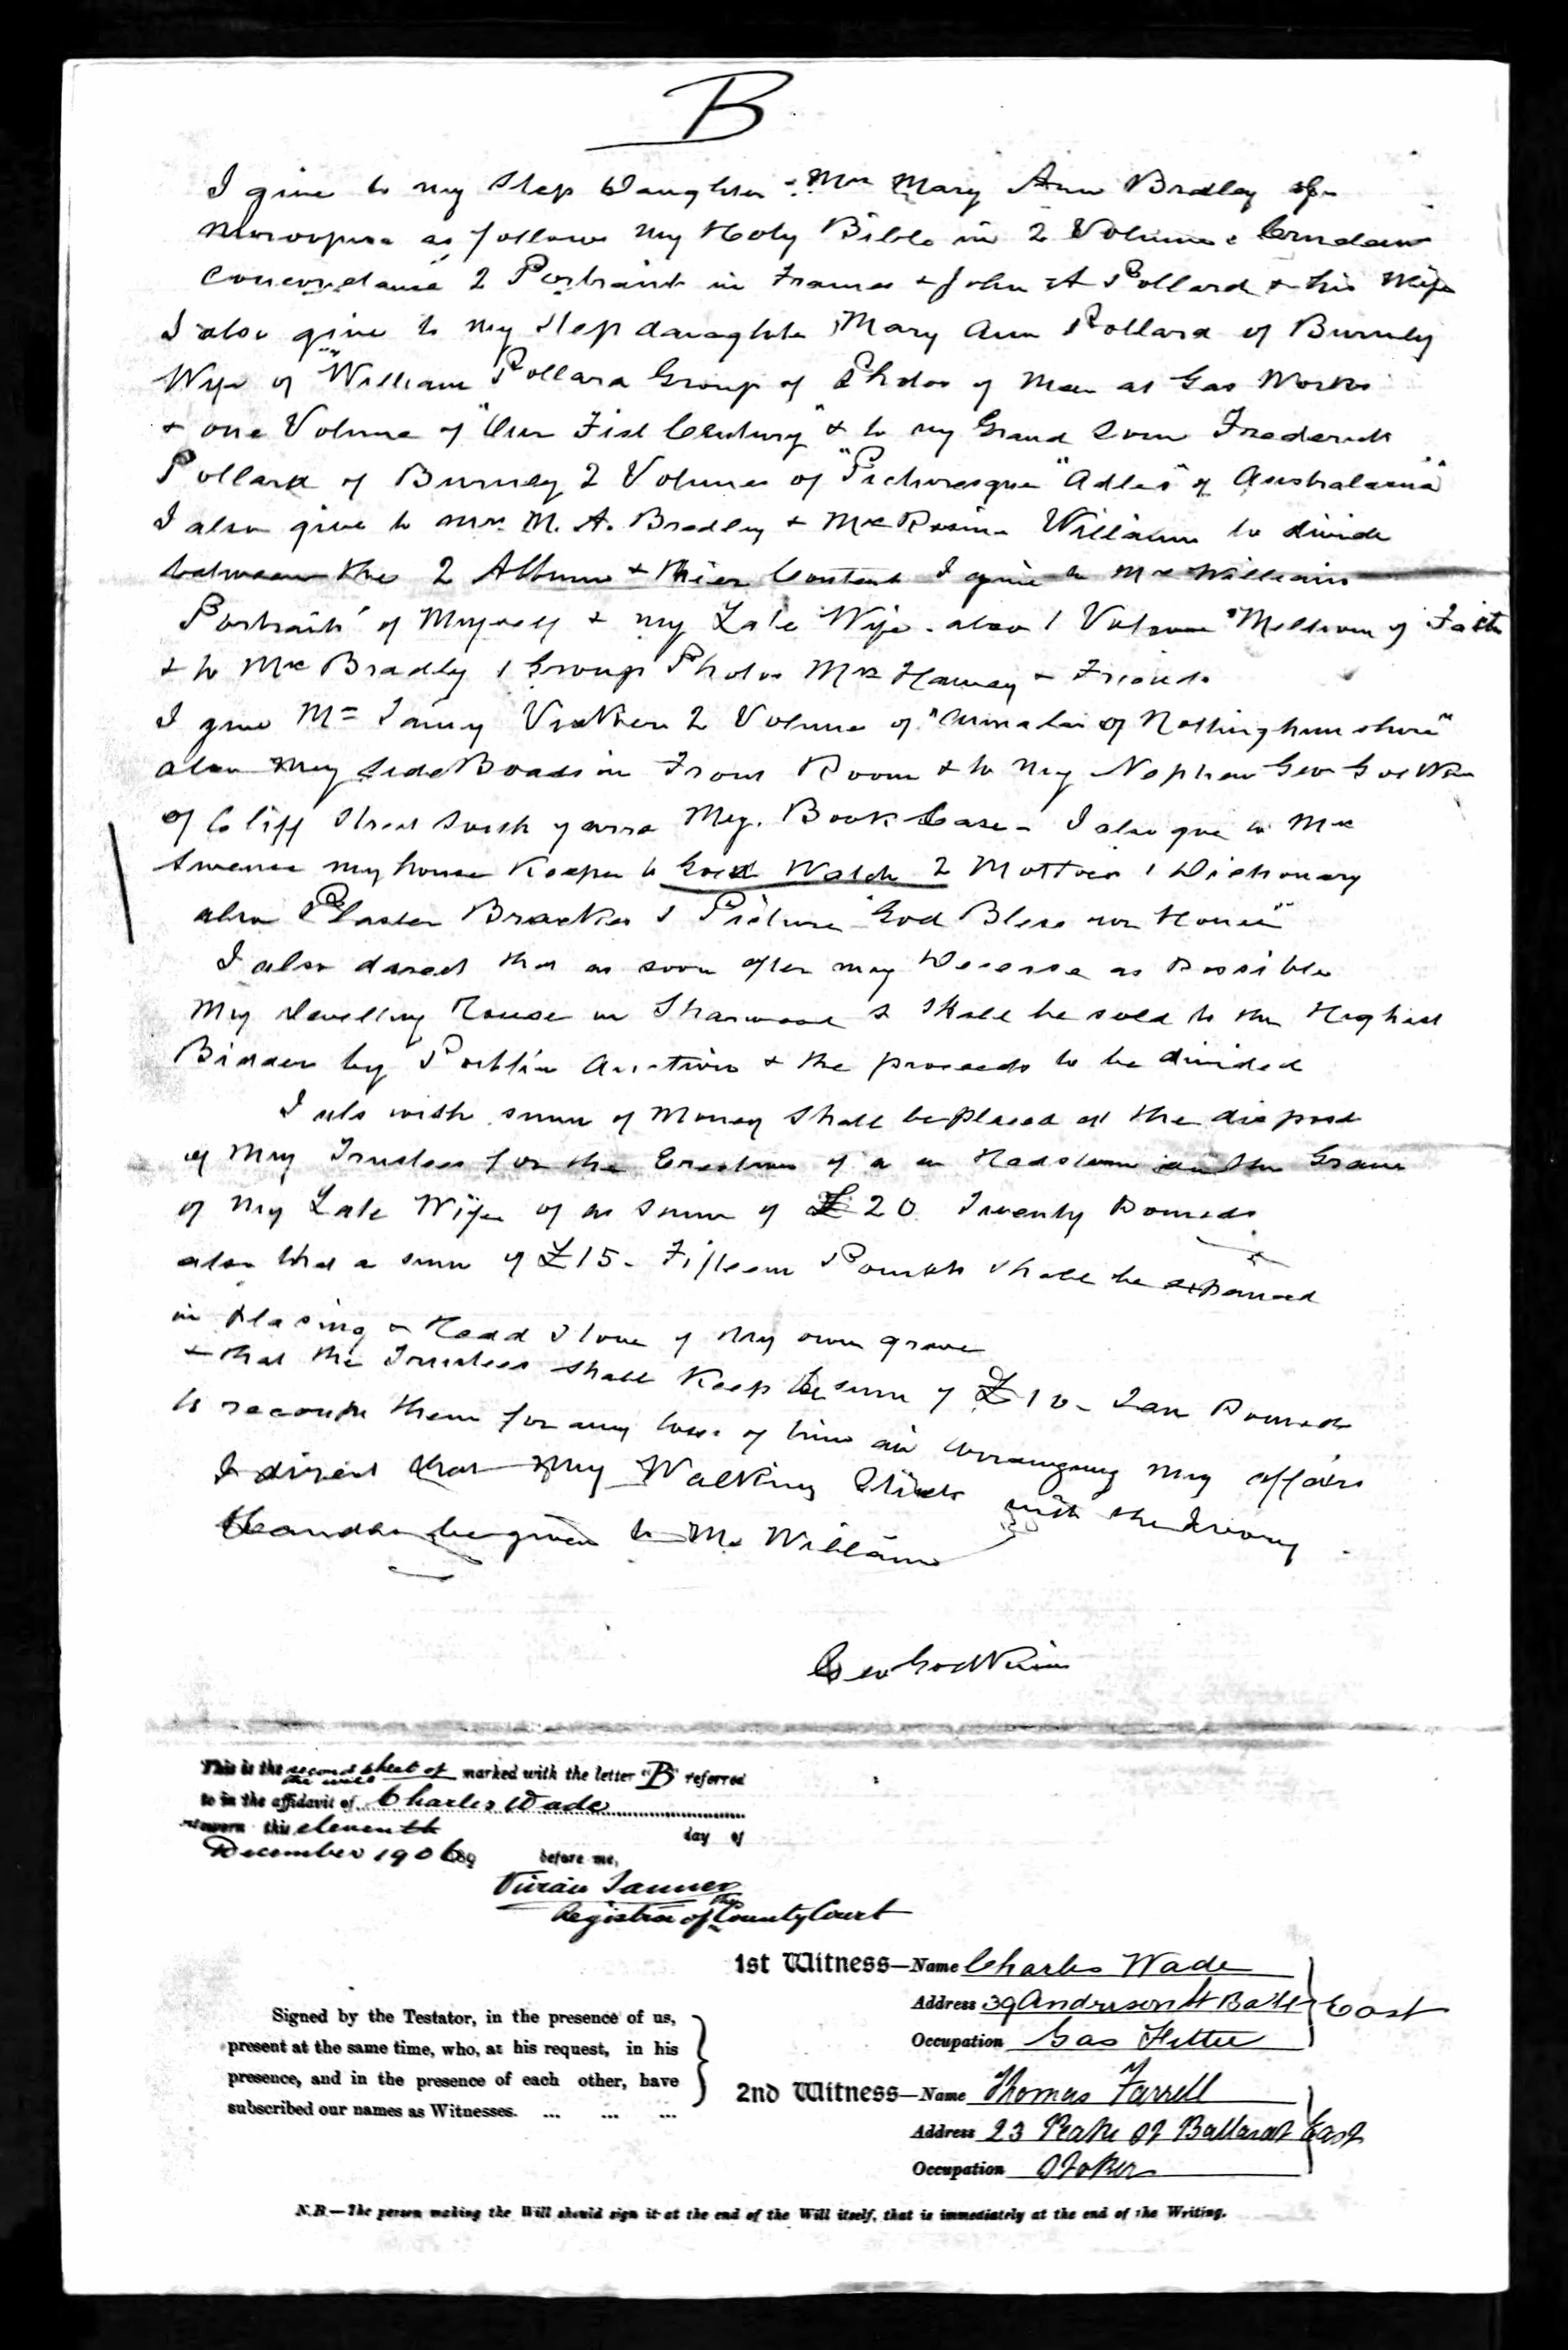 B
I give to my Step Daughter Mrs Mary Ann Bradley of
Mooroopna as follows My Holy Bible in 2 Volumes Crudens
Concordance 2 Portraits in Frames John A Pollard & his Wife
I also give to my Step daughter Mary Ann Pollard of Burnley
Wife of William Pollard Group of Photos of Men at Gas Works
& one Volume of "Our First Century" & to my Grand Son Frederick
Pollard of Burnley 2 Volumes of "Picturesque "Atlas" of Australasia"
I also give to Mrs M. A. Bradley & Mrs Williams to divide
between the 2 Albums & thier Contents I give to Mrs Williams
Portraits of Myself & my Late Wife also 1 Volume "Million of Facts
& to Mrs Bradley 1 Group Photos Mrs & Friends
I give Mrs 2 Volumes of " of Nottinghamshire"
also My Side Board in Front Room & to my Nephew Geo
of Cliff Street South yarra My Book Case - I also give to Mrs
my house Keeper Gold Watch 2 Mottoes 1 Dictionary
also Plaster Bracket 1 Picture "God Bless our House"
I also direct that as soon after my Decease as Possible
My dwelling House in St Shall be sold to the Highest
Bidder by Public Auction & the proceeds to be divided
I also wish sum of Money Shall be Placed at the disposal
of My Trustees for the Erection of a Headstone on the Grave
of My Late Wife of a Sum of £20 Twenty Pounds
also that a sum of £15 - Fifteen Pounds shall be expended
in Placing a Head Stone of My own grave
& that the Trustees shall Keep the sum of £10 - Ten Pounds
to recoupe them for any loss of time in arranging my affairs
I direct that My Walking Stick with the Ivory
Handle be given to Mr Williams
Geo Godkin
This is the second sheet of the will marked with the letter "B" referred
to in the affidavit of Charles Wade
sworn this eleventh day of
December 1906 before me,
Vivian Tanner
Registrar of the County Court
1st Witness—Name Charles Wade
Address 39 Anderson St Balt East
Occupation Gas Fitter
Signed by the Testator, in the presence of us,
present at the same time, who, at his request, in his
presence, and in the presence of each other, have
subscribed our names as Witnesses. ... ... ...
2nd Witness—Name Thomas Farrell
Address 23 Peake St Ballarat East
Occupation Stoker
N.B.—The person making the Will should sign it at the end of the Will itself, that is immediately at the end of the Writing.